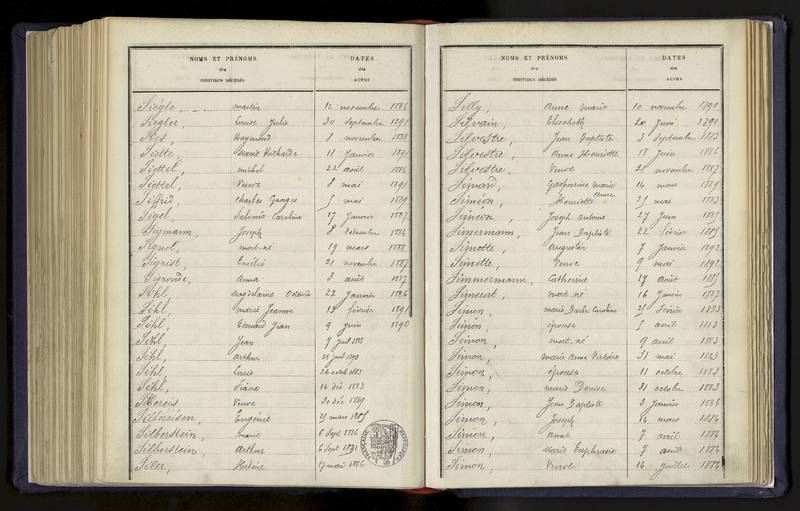 NOMS ET PRÉNOMS
des
INDIVIDUS DÉCÉDÉS
DATES
des
ACTES
Siégle, martin 12 novembre 1886
Siegler, Louise Julie 30 Septembre 1891
Raymond 8 novembre 1888
Siette, Marie 11 Janvier 1891
Siettel, michel 22 août
Siettel, Veuve 8 mai 1891
Siffrid, Charles Georges 5 mai 1889
Sigel, Salomée Caroline 17 Janvier 1887
Sigmann, Joseph 8 décembre 1886
Signol, mort-né 19 mars 1888
Sigrist, Emilie 21 novembre 1887
Sigronde, Anna 3 août 1887
Magdelaine Octavie 22 Janvier 1886
Sihl, Marie Jeanne 12 février 1891
Sihl, Edouard Jean 9 juin 1890
Sihl, Jean 7 Juil 1888
Sihl, Arthur Juil 1890
Sihl, Louis 26 octob 1883
Sihl, 14 déc 1883
Veuve 30 déc 1889
Silbereisen, Eugénie 25 mars 1885
Silberstein, Marie 6 Sept 1886
Silberstein, Arthur 6 Sept 1891
Siler, Hélène 17 mai 1886
NOMS ET PRÉNOMS
des
INDIVIDUS DÉCÉDÉS
DATES
des
ACTES
Silly, Anne Marie 10 novembre 1890
Silvain, Elisabeth 20 Juin 1890
Silvestre, Jean Baptiste 3 Septembre 1883
Silvestre, Anne Henriette 18 Juin 1886
Silvestre, Veuve 25 novembre 1887
Simard, Gasparine Marie 14 mars 1889
Siméon, Henriette Anne 25 mai 1883
Siméon, Joseph Antoine 27 Juin 1885
Simermann, Jean Baptiste 22 février 1885
Simette, Augustin 7 Janvier 1892
Simette, Veuve 9 mai 1892
Simmermann, Catherine 17 août 1885
mort né 16 Janvier 1887
Simon, Marie Barbe Caroline 21 février 1883
Simon, épouse 5 avril 1883
Simon, mort né 9 avril 1883
Simon, Marie Anne Victoire 31 mai 1883
Simon, épouse 11 octobre 1883
Simon, Marie Denise 31 octobre 1883
Simon, Jean Baptiste 3 Janvier 1884
Simon, Joseph 14 mars 1884
Simon, Anne 7 avril 1884
Simon, Marie Euphrasie 7 août 1884
Simon, Veuve 14 juillet 1884